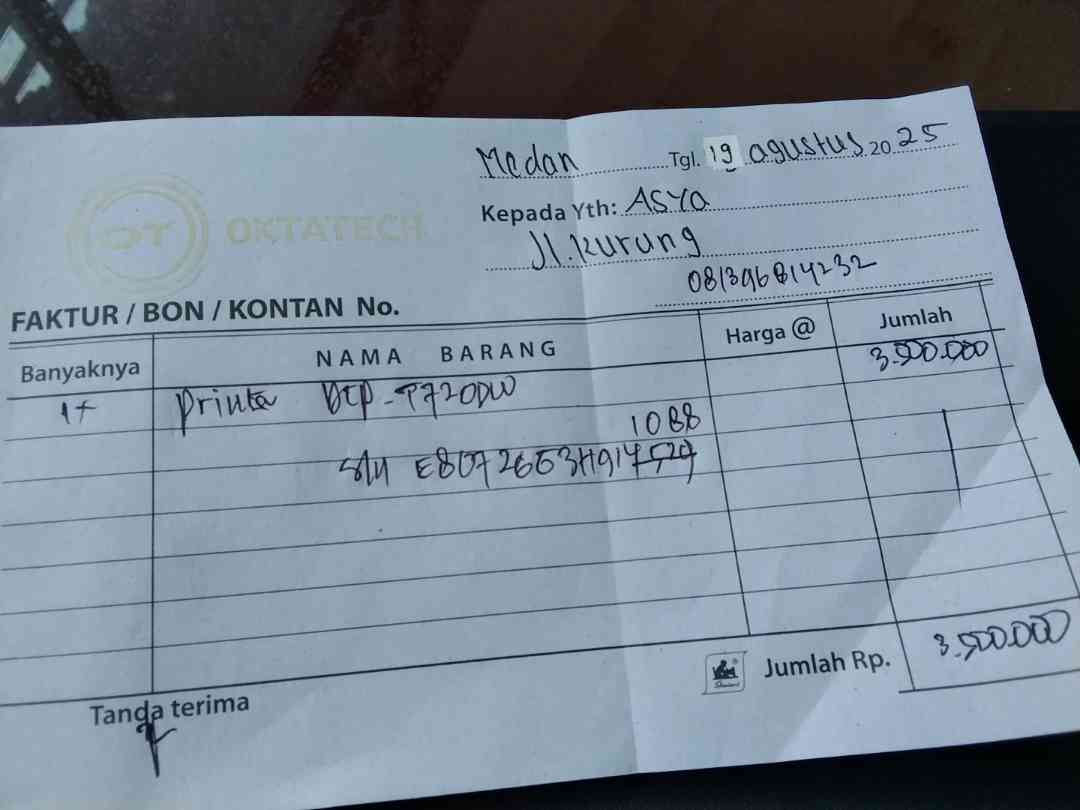 Medan Tgl. 19 agustus 2025
Kepada Yth: Asya
Jl. Kurung
081396814232
OT OKTATECH
FAKTUR / BON / KONTAN No.
Banyaknya NAMA BARANG Harga @ Jumlah
1+ Printer DCP-T720DW 3.500.000
1088
S/N E80726653H914529
Jumlah Rp. 3.500.000
Tanda terima